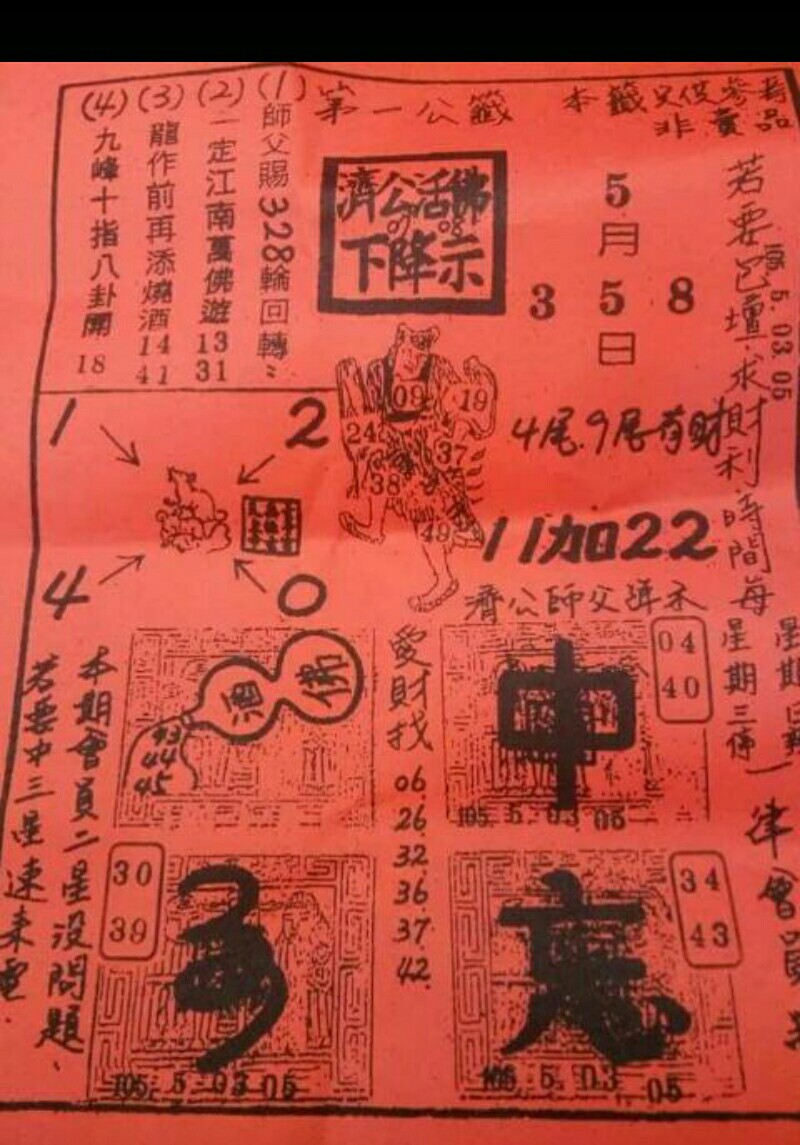 第一公籤
本籤只供參考
非賣品
(1)師父賜328輪回轉"
(2)一定江南萬佛遊13 31
(3)龍作前再添燒酒14 41
(4)九峰十指八卦開18
濟公活佛
07 08
下降示
5
月
3 5 8
日
105.5.03 05
若要包壇求財利時間每
星期三
一律會員
09
19
24
37
38
49
4尾.9尾有財
11加22
濟公師父降示
1
2
4
0
本期會員二星沒問題、
若要中三星速來電.
佛
酒
93
44
45
愛財找
06.
26.
32.
36.
37.
42.
中
04
40
105.5.03 05
30
39
105.5.03 05
34
43
105.5.03 05